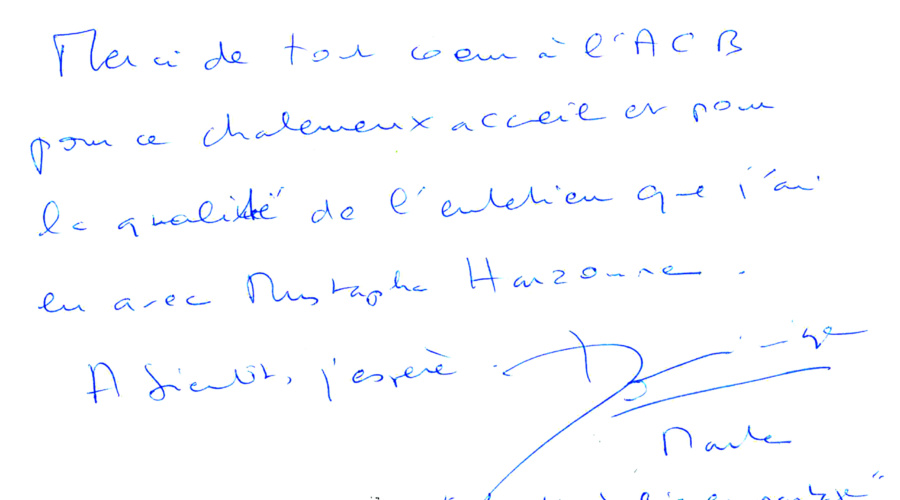 Merci de tout coeur à l'ACB
pour ce chaleureux accueil et pour
la qualité de l'entretien que j'ai
eu avec Mustapha Harzoune.
A bientôt, j'espère.